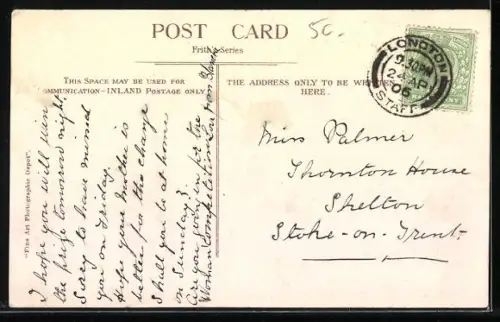 POST CARD
5c.
Frith's Series
THIS SPACE MAY BE USED FOR
COMMUNICATION—INLAND POSTAGE ONLY
THE ADDRESS ONLY TO BE WRITTEN
HERE.
LONGTON
9.30PM
24 AP
06
STAFF
Miss Palmer
Thornton House
Shelton
Stoke-on-Trent.
"Fine Art Photographic Depot".
I hope you will win
the prize tomorrow night
Sorry to have missed
you on Friday
Hope your Mother is
better for the change
Shall you be at home
on Sunday?
Are you going in for the
Woman Competition